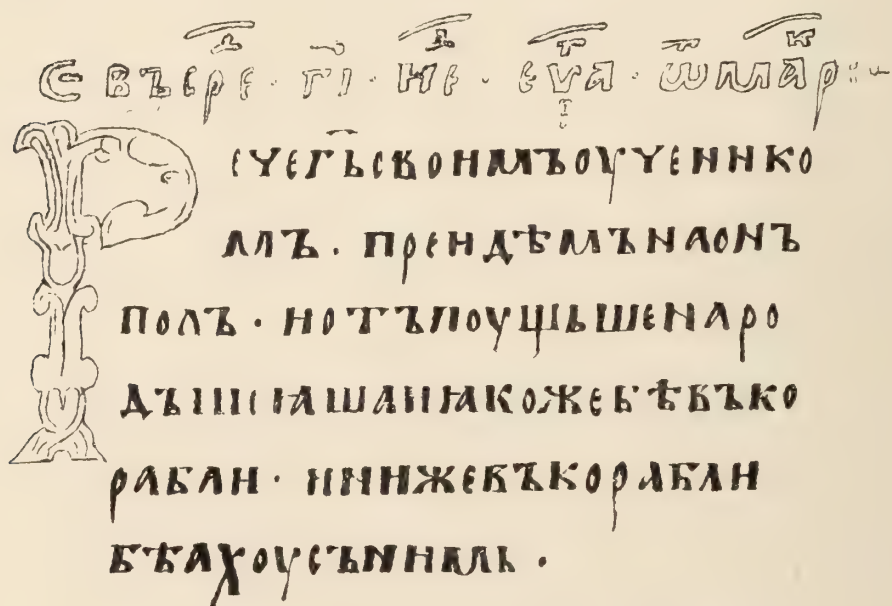 С ВЪ СРЕⷣ · Г҃І · НЕⷣ · ЕѴАⷢ · Ѿ МАРⷦ :~
РЕЧЕГ҃ЬСВОИМЪОУЧЕНИКО
МЪ · ПРЕИДѢМЪНАОНЪ
ПОЛЪ · ИОТЪПОУЩЬШЕНАРО
ДЪПОꙖШАИꙖКОЖЕБѢВЪКО
РАБЛИ · ИИНИЖЕВЪКОРАБЛИ
БѢАХОУСЪНИМЬ ·